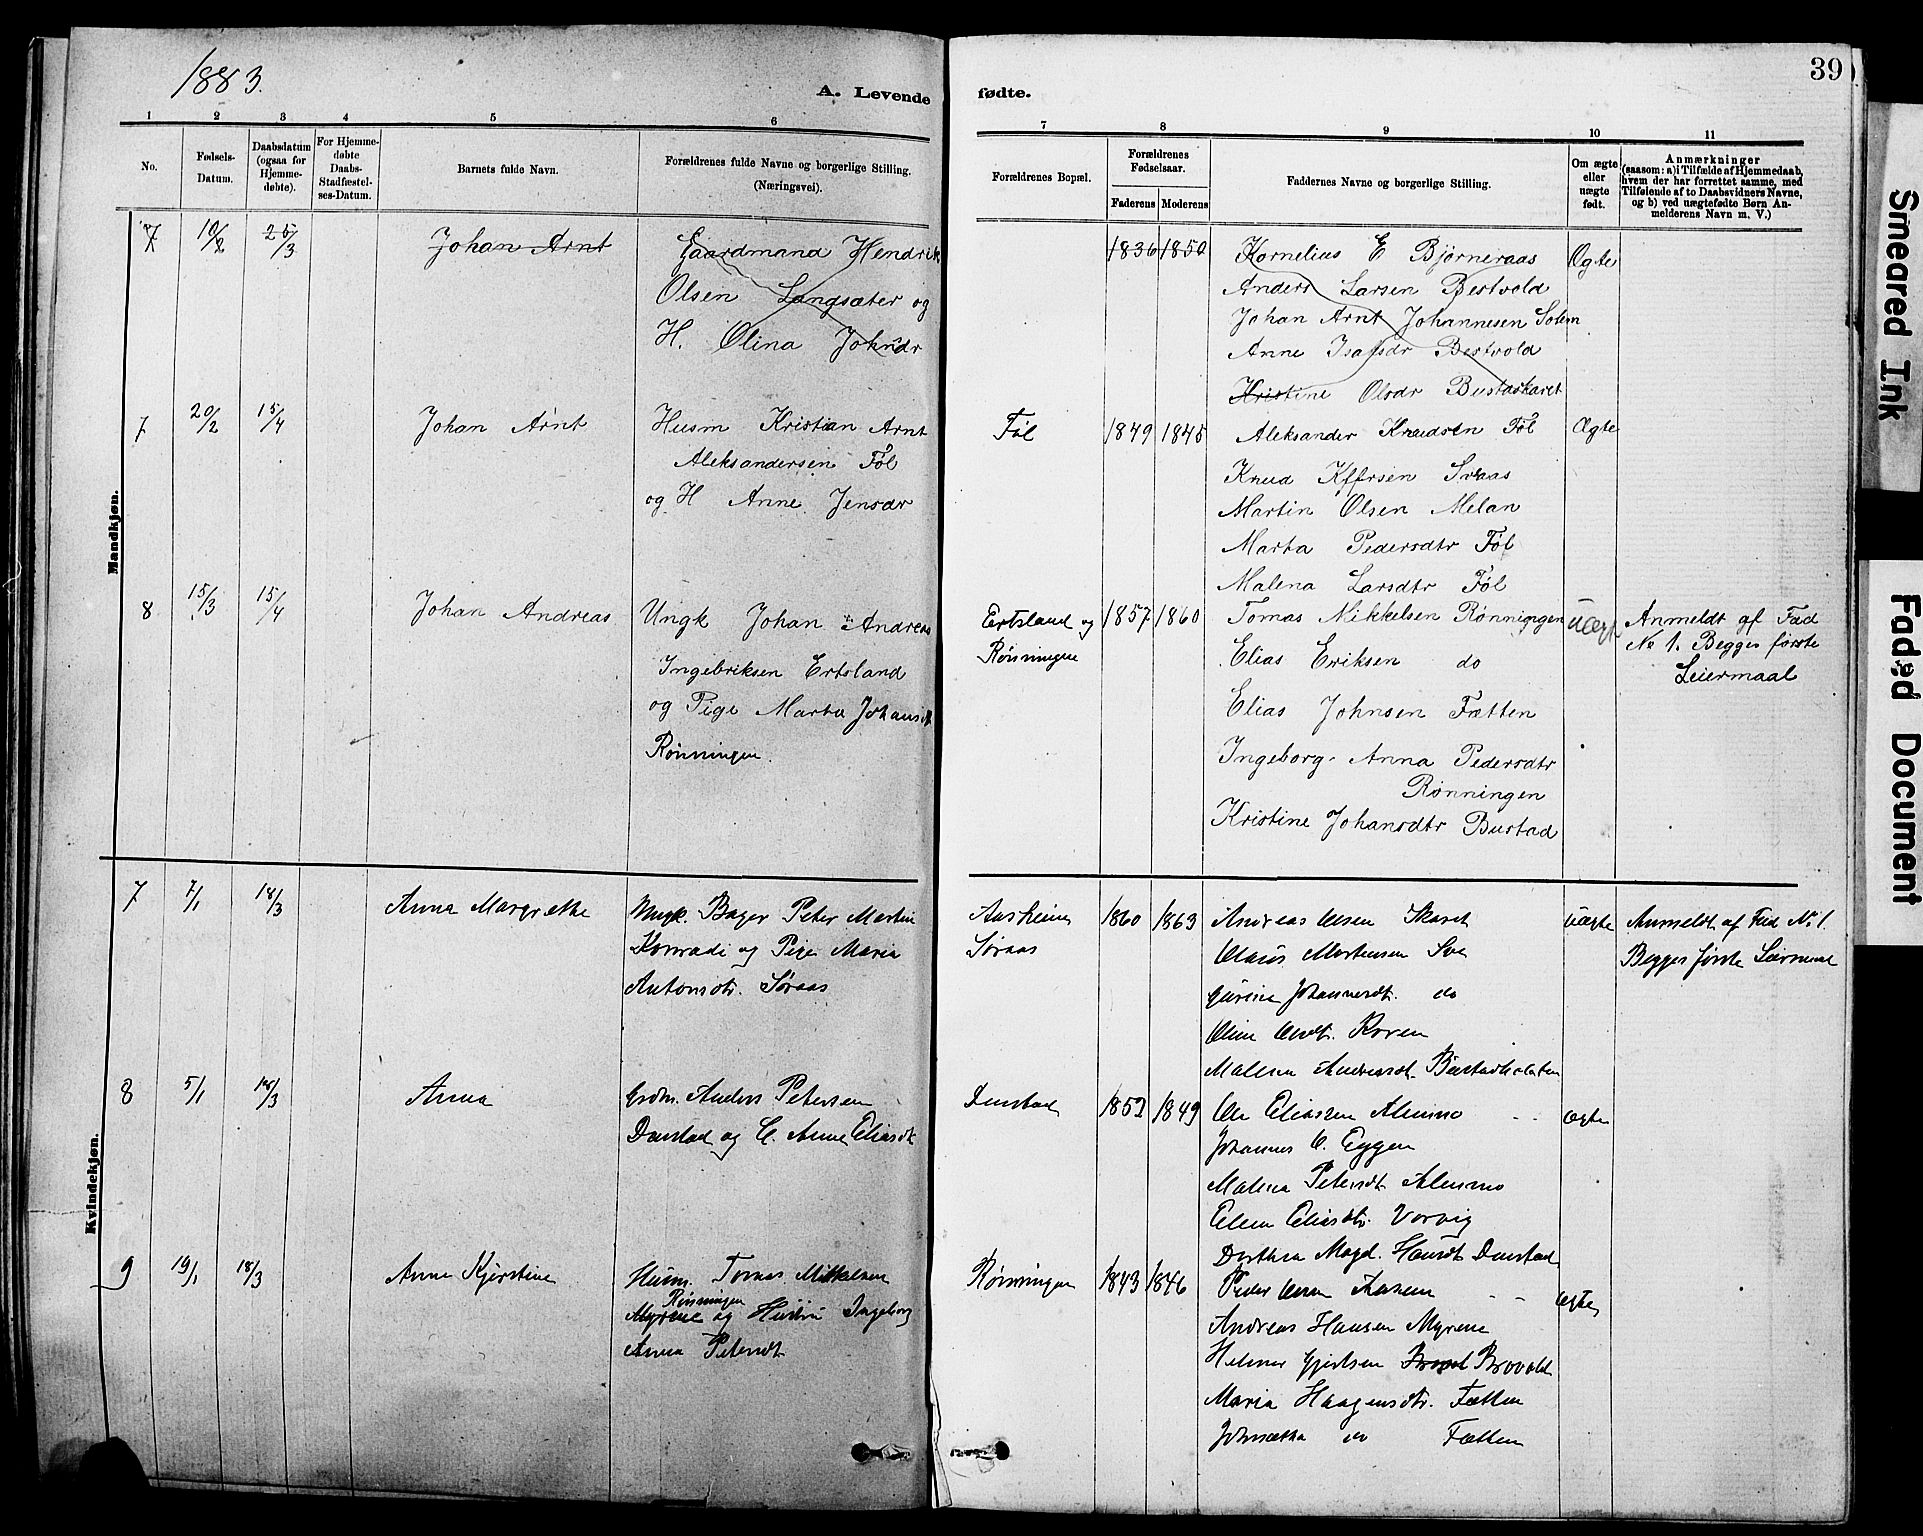 1883.
39
A. Levende
fødte.
1 2 3 4 5 6 7 8 9 10 11
No.
Fødsels-Datum.
Daabsdatum (ogsaa for Hjemmedøbte).
For Hjemmedøbte Daabs-Stadfæstelses-Datum.
Barnets fulde Navn.
Forældrenes fulde Navne og borgerlige Stilling.
(Næringsvei).
Forældrenes Bopæl.
Forældrenes Fødselsaar.
Faderens Moderens
Faddernes Navne og borgerlige Stilling.
Om ægte eller uægte født.
Anmærkninger
(saasom: a) i Tilfælde af Hjemmedaab,
hvem der har forrettet samme, med
Tilføiende af to Daabsvidners Navne,
og b) ved uægtefødte Børn Anmelderens Navn m. V.)
Mandkjøn.
7 10/2 25/3 Johan Arnt
Gaardmand Hendrik
Olsen Langsæter og
H. Olina Johnsdr
1836 1850
Kornelius E Bjørneraas
Anders Larsen Bestvold
Johan Arnt Johannesen Solem
Anne Isaksdr Bestvold
Kristine Olsdr Bustadskaret
Ægte
7 20/2 15/4 Johan Arnt
Husm Kristian Arnt
Aleksandersen Føl
og H Anne Jensdr
Føl
1849 1845
Aleksander Knudsen Føl
Knud Kffrsen
Martin Olsen Melan
Marta Pedersdtr Føl
Malena Larsdtr Føl
Ægte
8 15/3 15/4 Johan Andreas
Ungk Johan Andreas
Ingebriksen Ertsland
og Pige Marta Johansdt
Rønningen.
Ertsland og
Rønningen
1857 1860
Tomas Mikkelsen Rønningen
Elias Eriksen do
Elias Johnsen Fætten
Ingeborg Anna Pedersdtr
Rønningen
Kristine Johansdtr Bustad
Uægt
Anmeldt af Fad
No 1. Begges første
Leiermaal
Kvindekjøn.
7 7/1 18/3 Anna Margrethe
Ungk. Bager Peter Martin
Konradi og Pige Maria
Antonsdtr. Søraas
Aasheim
Søraas
1860 1863
Andreas Olsen Skaret
Olaus Mortensen Sve
Gurine Johannesdt. do
Oline Olsdt. Roven
Malena Andreasdt.
uægte
Anmeldt af Fad No 1.
Begges første Leiermaal
8 5/1 18/3 Anna
Grdm. Anders Petersen
Dunstad og H. Anne Eliasdt
Dunstad
1852 1849
Ole Eliassen Alemmo
Johannes O. Eggen
Malena Petersdt. Alemmo
Ellen Eliasdtr. Vorvig
Dorthea Magd. Hansdt Dunstad
ægte
9 19/1 18/3 Anne Kjerstine
Husm. Tomas Mikkelsen
Rønningen
Myrene og Hustru Ingeborg
Anna Petersdt
Rønningen
1843 1846
Peder Olsen Aasen
Andreas Hansen Myrene
Helmer Gjertsen Brovold
Maria Haagensdtr. Fætten
Johnetta do Fætten
ægte
Smeared Ink
Faded Document